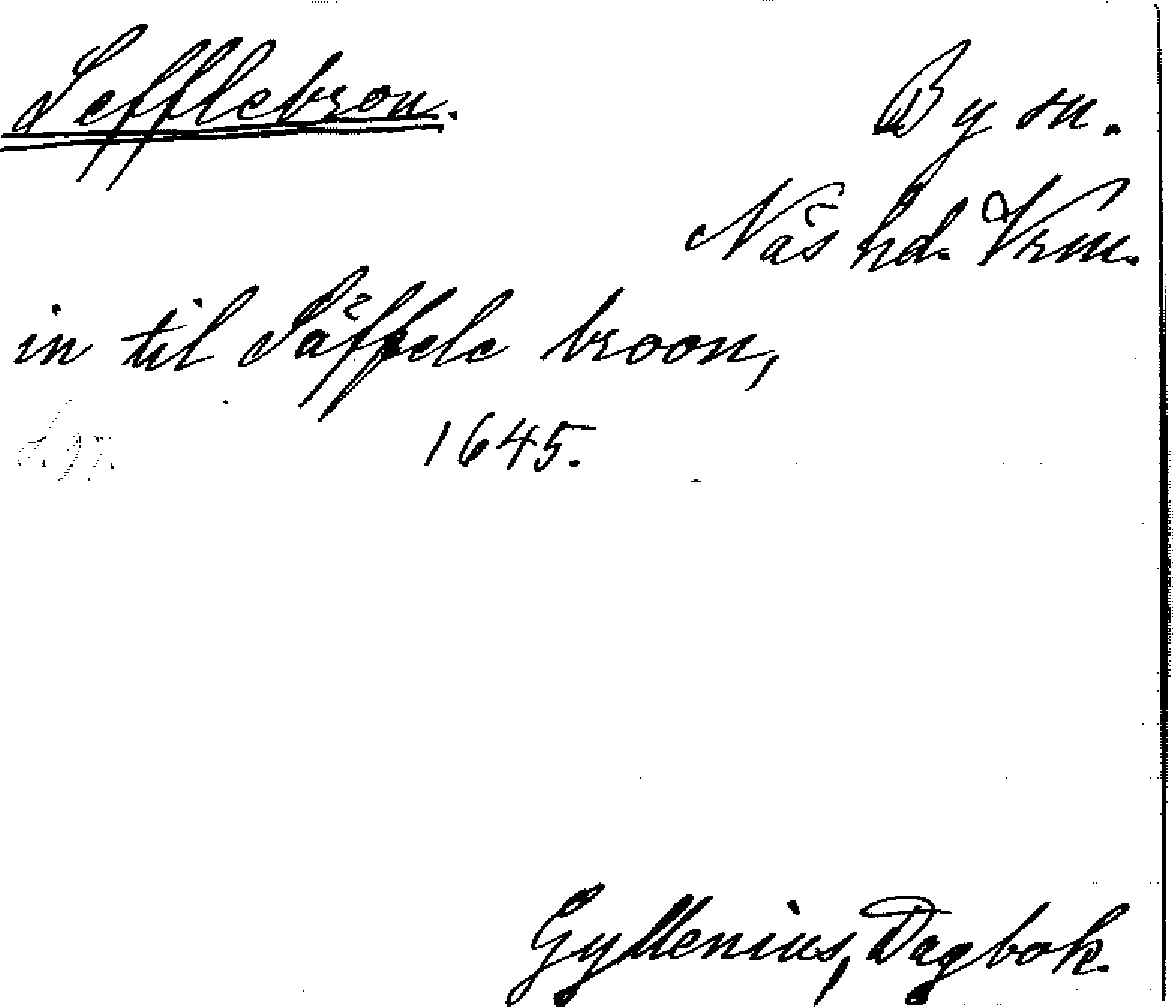 Sefflebron.
By sn.
Näs hd. Vrm.
in til Säffele broon,
1645.
Gyllenius, Dagbok.